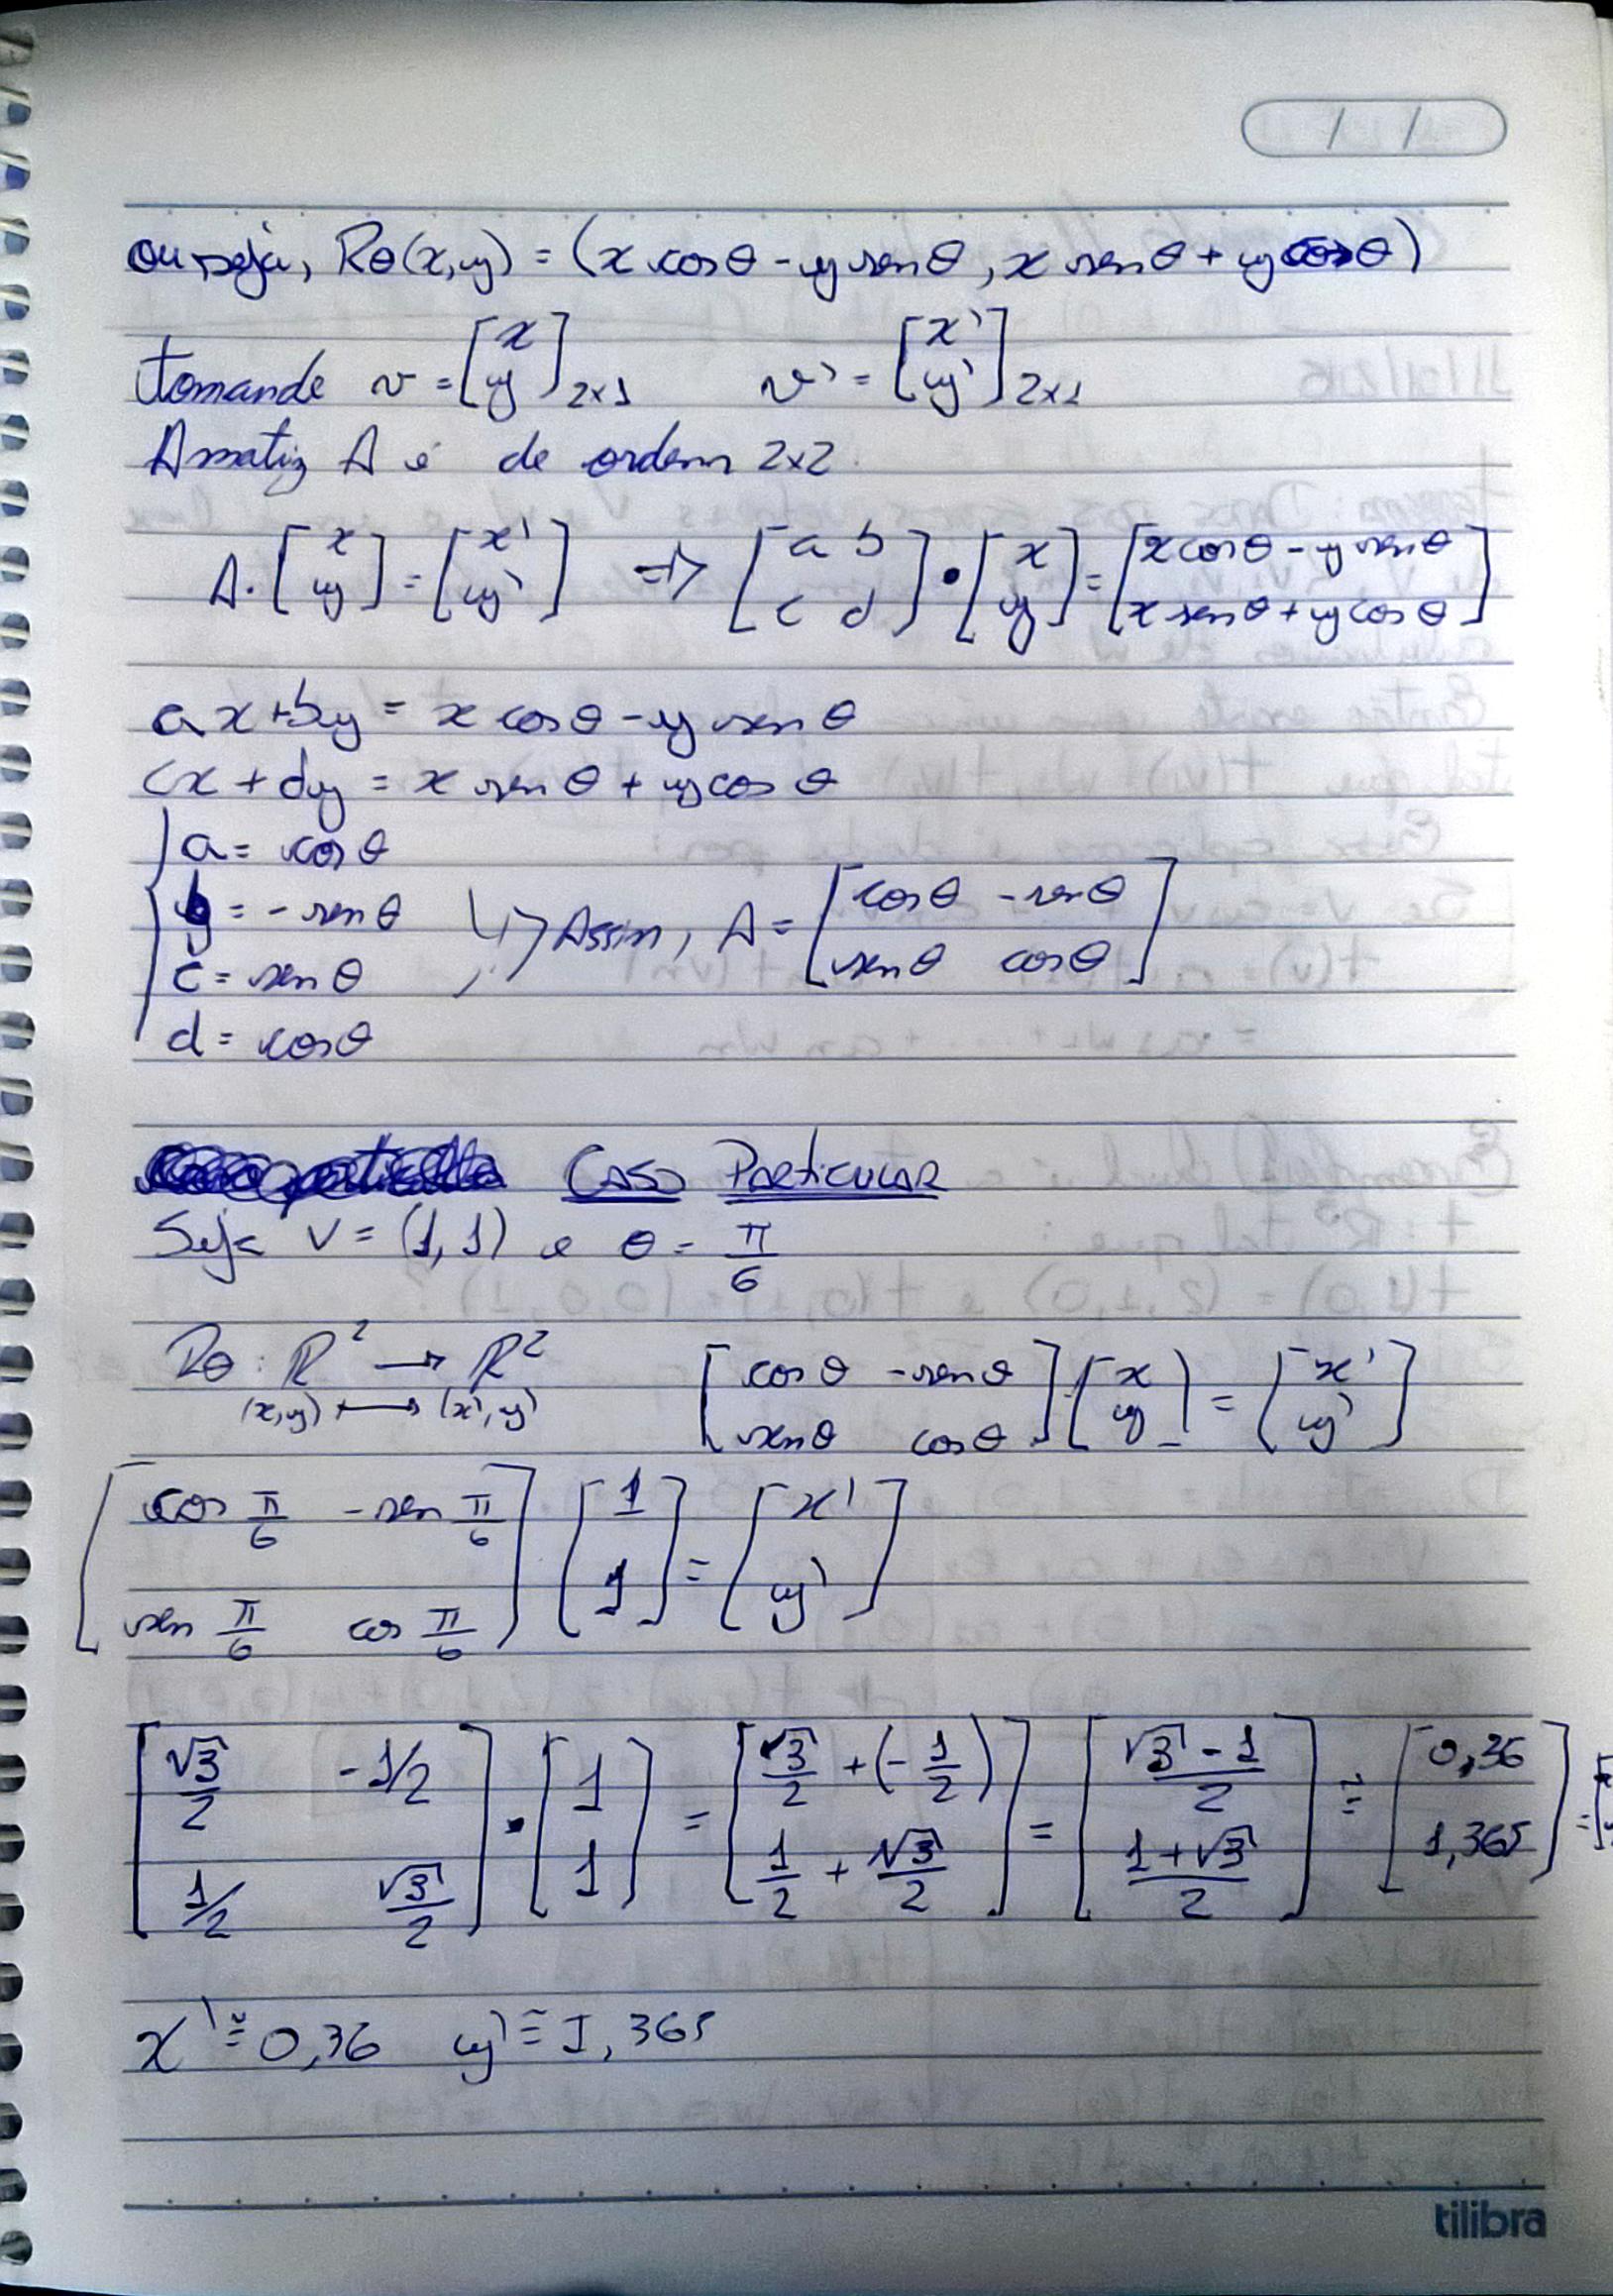 / /
ou seja, Rθ(x,y) = (x cosθ - y senθ, x senθ + y cosθ)
tomando v = [x y]2x1 v' = [x' y']2x1
A matiz A é de ordem 2x2.
A. [x y] = [x' y'] => [a b c d] • [x y] = [x cosθ - y senθ x senθ + y cosθ]
ax + by = x cosθ - y senθ
cx + dy = x senθ + y cosθ
a = cosθ
b = - senθ
c = senθ
d = cosθ
↳ Assim, A = [cosθ -senθ senθ cosθ]
CASO PARTICULAR
Seja V = (1, 1) e θ = π/6
Rθ : R² → R²
(x,y) ↦ (x', y')
[cosθ -senθ senθ cosθ] [x y] = [x' y']
[cos π/6 -sen π/6 sen π/6 cos π/6] [1 1] = [x' y']
[√3/2 -1/2 1/2 √3/2] • [1 1] = [√3/2 + (-1/2) 1/2 + √3/2] = [√3 - 1/2 1 + √3/2] ≅ [0,36 1,365] =
x' ≅ 0,36 y' ≅ 1,365
tilibra